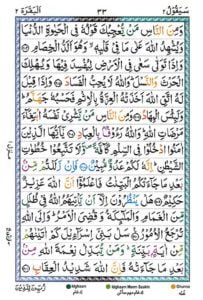 اَلْبَقَرَة ٢ ٣٣ سَيَقُوْلُ ٢
وَمِنَ النَّاسِ مَنْ يُّعْجِبُكَ قَوْلُهٗ فِي الْحَيٰوةِ الدُّنْيَا
وَيُشْهِدُ اللّٰهَ عَلٰى مَا فِيْ قَلْبِهٖ ۙ وَهُوَ اَلَدُّ الْخِصَامِ ۝ وَاِذَا
تَوَلّٰى سَعٰى فِي الْاَرْضِ لِيُفْسِدَ فِيْهَا وَيُهْلِكَ
الْحَرْثَ وَالنَّسْلَ ؕ وَاللّٰهُ لَا يُحِبُّ الْفَسَادَ ۝ وَاِذَا قِيْلَ
لَهُ اتَّقِ اللّٰهَ اَخَذَتْهُ الْعِزَّةُ بِالْاِثْمِ فَحَسْبُهٗ جَهَنَّمُ ؕ وَ
لَبِئْسَ الْمِهَادُ ۝ وَمِنَ النَّاسِ مَنْ يَّشْرِيْ نَفْسَهُ ابْتِغَآءَ
مَرْضَاتِ اللّٰهِ ؕ وَاللّٰهُ رَءُوْفٌۢ بِالْعِبَادِ ۝ يٰۤاَيُّهَا الَّذِيْنَ
اٰمَنُوا ادْخُلُوْا فِي السِّلْمِ كَآفَّةً ۪ وَلَا تَتَّبِعُوْا خُطُوٰتِ
الشَّيْطٰنِ ؕ اِنَّهٗ لَكُمْ عَدُوٌّ مُّبِيْنٌ ۝ فَاِنْ زَلَلْتُمْ مِّنْۢ
بَعْدِ مَا جَآءَتْكُمُ الْبَيِّنٰتُ فَاعْلَمُوْۤا اَنَّ اللّٰهَ عَزِيْزٌ
حَكِيْمٌ ۝ هَلْ يَنْظُرُوْنَ اِلَّاۤ اَنْ يَّاْتِيَهُمُ اللّٰهُ فِيْ ظُلَلٍ
مِّنَ الْغَمَامِ وَالْمَلٰٓئِكَةُ وَقُضِيَ الْاَمْرُ ؕ وَاِلَى اللّٰهِ
تُرْجَعُ الْاُمُوْرُ ۝ سَلْ بَنِيْۤ اِسْرَآءِيْلَ كَمْ اٰتَيْنٰهُمْ
مِّنْ اٰيَةٍۭ بَيِّنَةٍ ؕ وَمَنْ يُّبَدِّلْ نِعْمَةَ اللّٰهِ مِنْۢ
بَعْدِ مَا جَآءَتْهُ فَاِنَّ اللّٰهَ شَدِيْدُ الْعِقَابِ ۝
Idghaam Idghaam Meem Saakin Ghunna